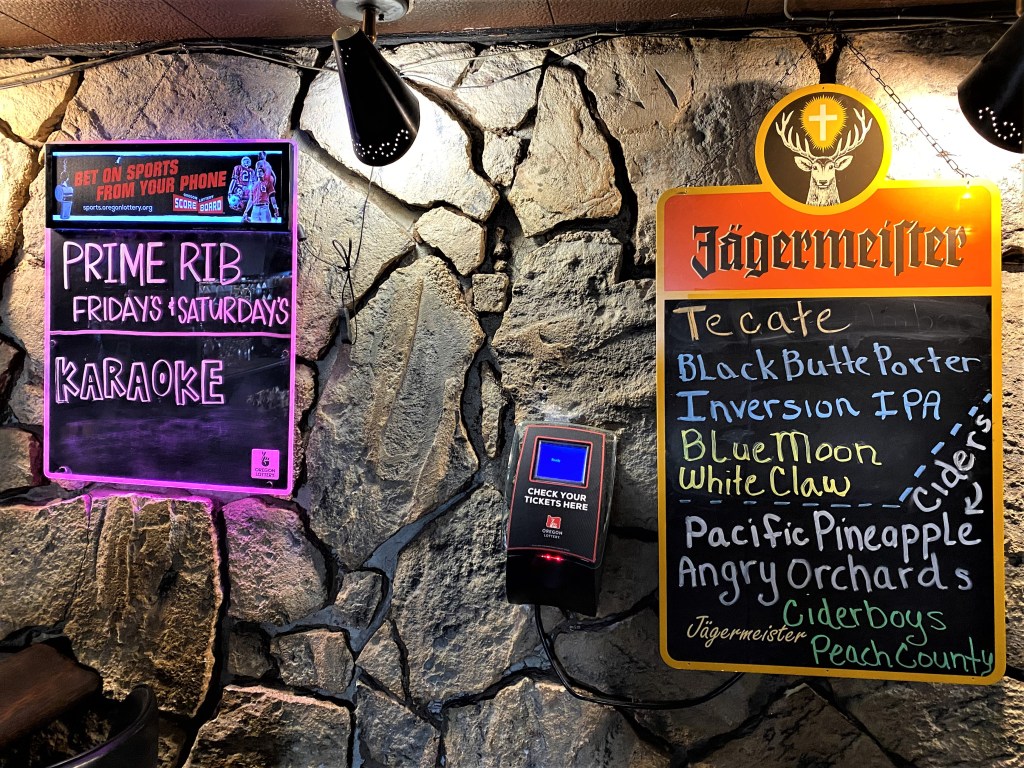 BET ON SPORTS
FROM YOUR PHONE
sports.oregonlottery.org
SCOREBOARD
PRIME RIB
FRIDAY'S + SATURDAY'S
KARAOKE
OREGON
LOTTERY
CHECK YOUR
TICKETS HERE
OREGON
LOTTERY
Jägermeister
Tecate
Black Butte Porter
Inversion IPA
Blue Moon
White Claw
Ciders
Pacific Pineapple
Angry Orchards
Ciderboys
Jägermeister
Peach County